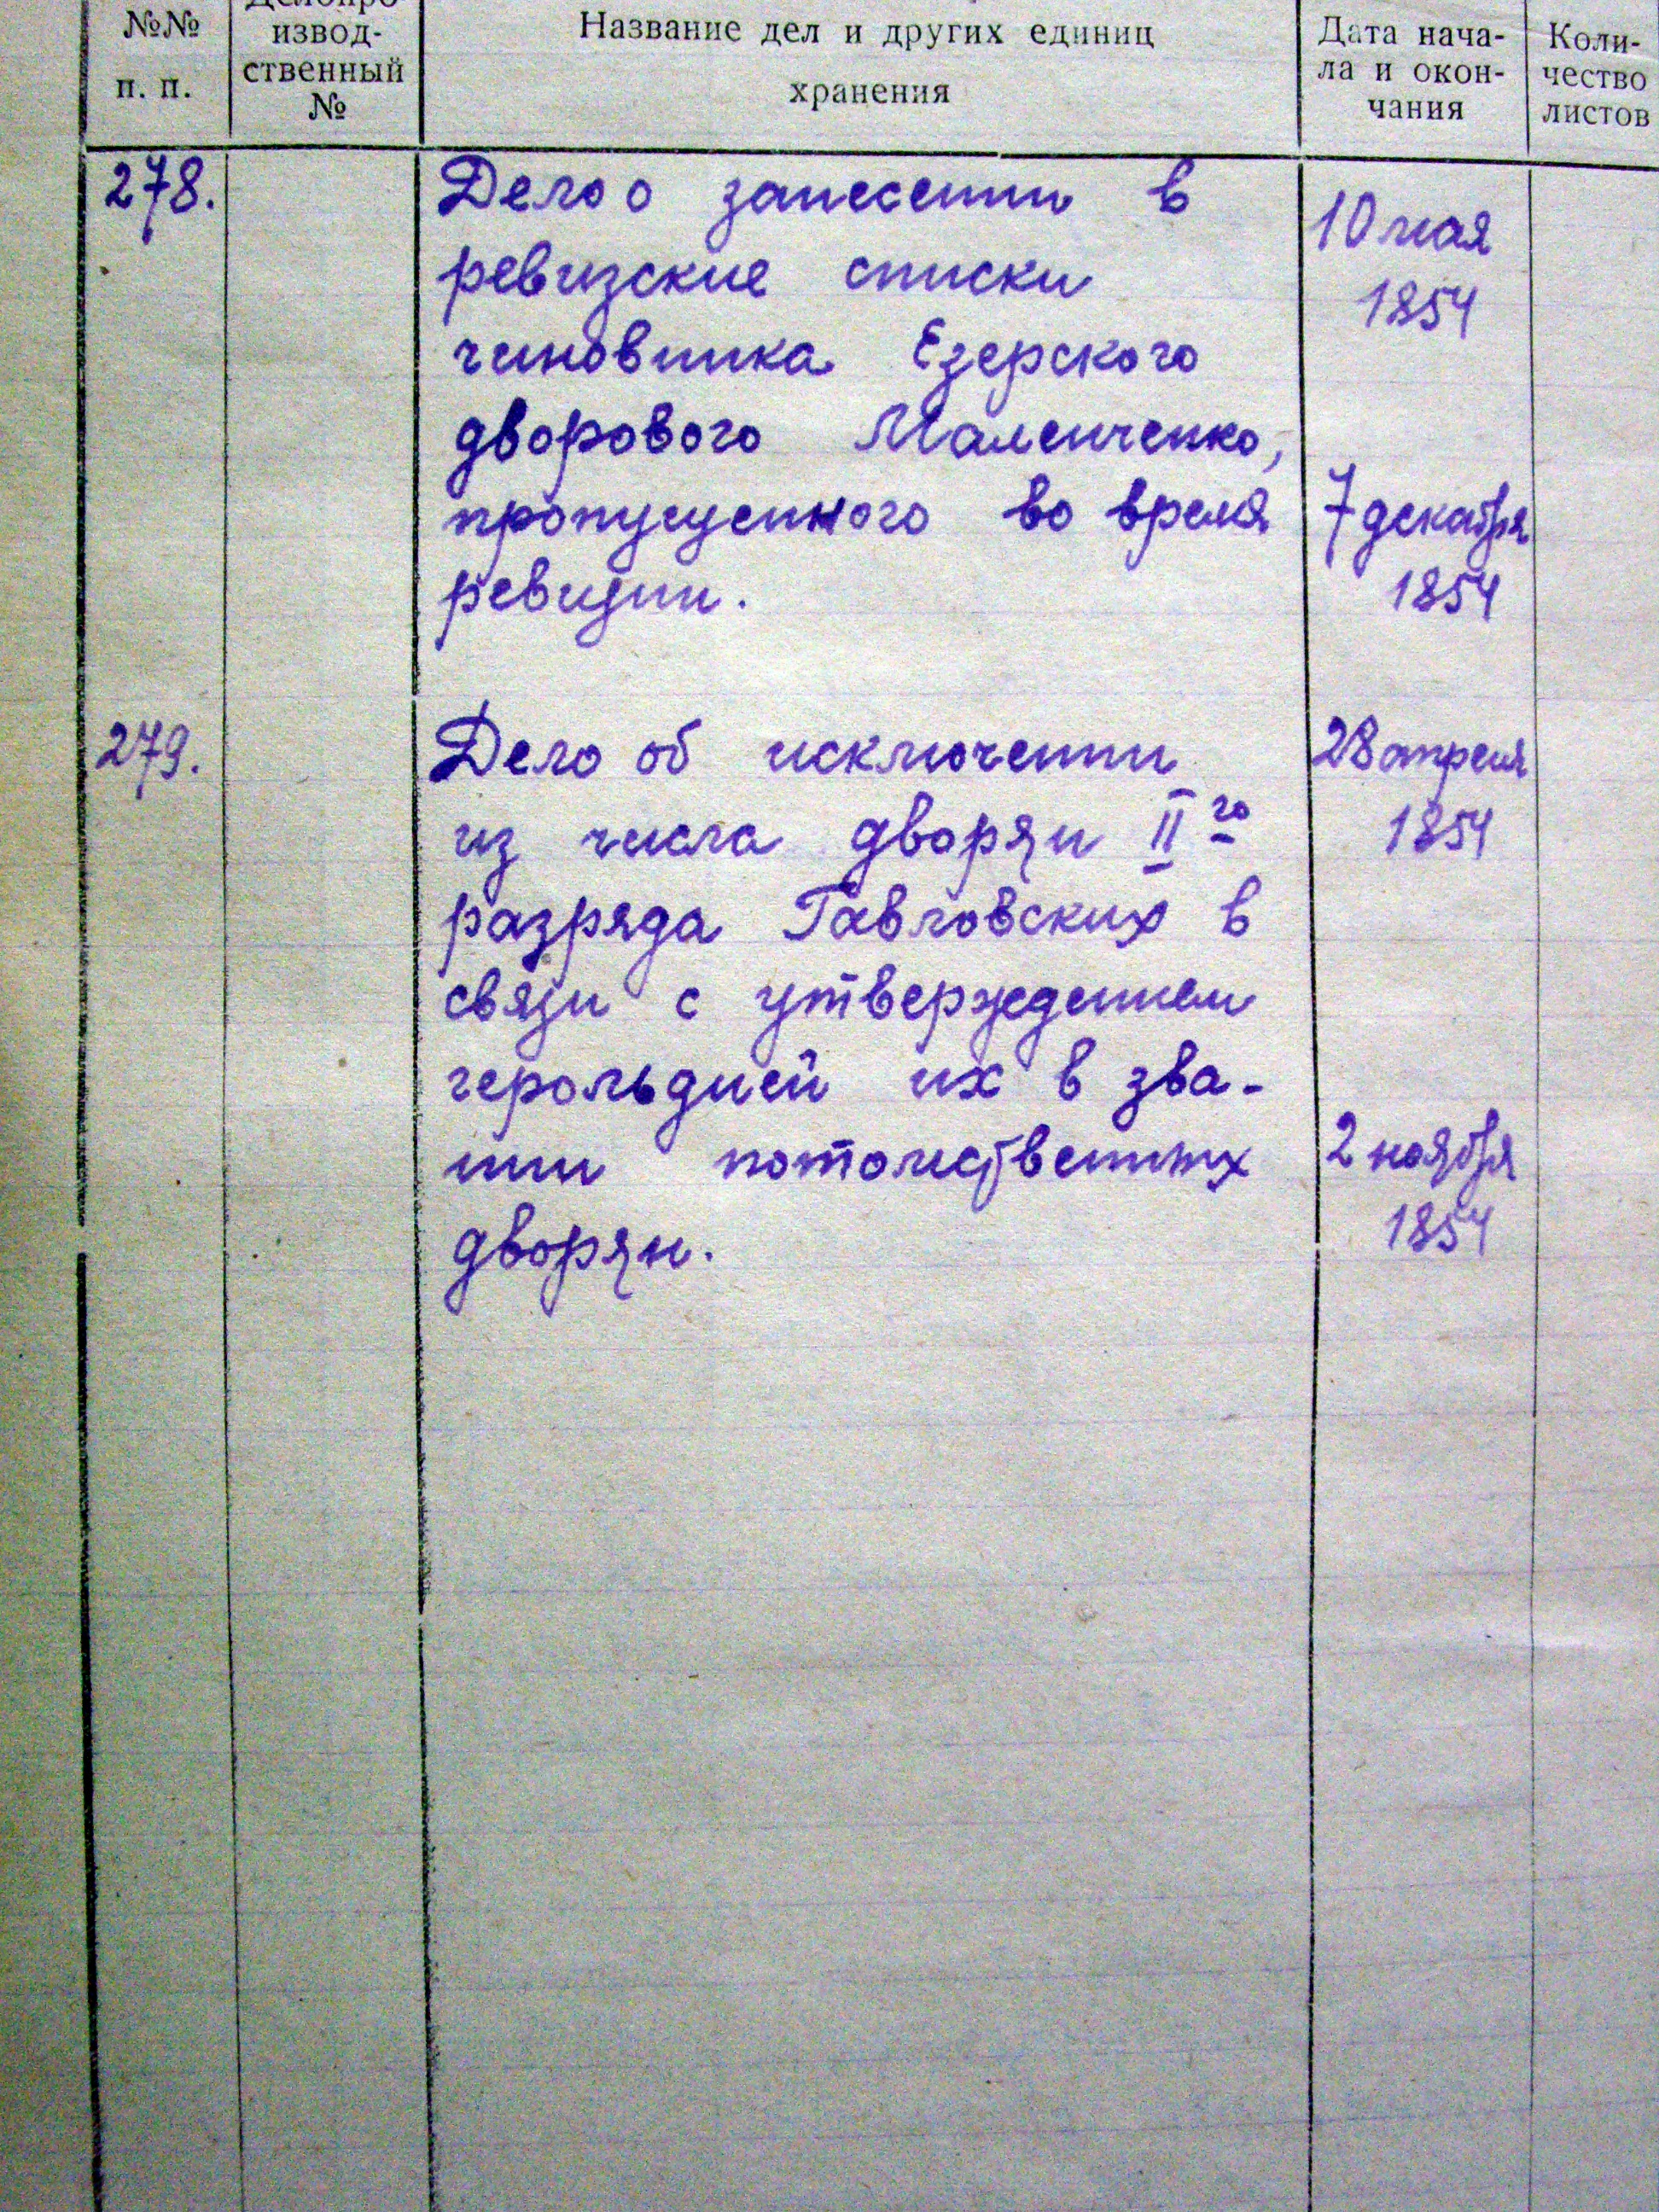 №№
п. п.
Делопро-
извод-
ственный
№
Название дел и других единиц
хранения
Дата нача-
ла и окон-
чания
Коли-
чество
листов
278.
Дело о занесении в
ревизские списки
чиновника Езерского
дворового Маленченко,
пропущенного во время
ревизии.
10 мая
1854
7 декабря
1854
279.
Дело об исключении
из числа дворян II го
разряда Гавловских в
связи с утверждением
герольдией их в зва-
нии потомственных
дворян.
28 апреля
1854
2 ноября
1854